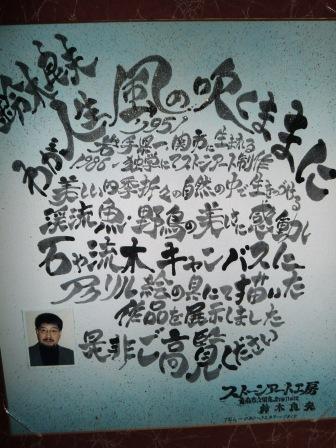 わが人生 風の吹くままに
1951 岩手県一関市に生まれる
1986 独学にてストーンアート制作
美しい四季折々の自然の中で生きづける
渓流魚・野鳥の美しさに感動し
石や流木キャンバスに
アクリル絵の具にて描いた
作品を展示しました
是非ご高覧ください
ストーンアート工房
鈴木良